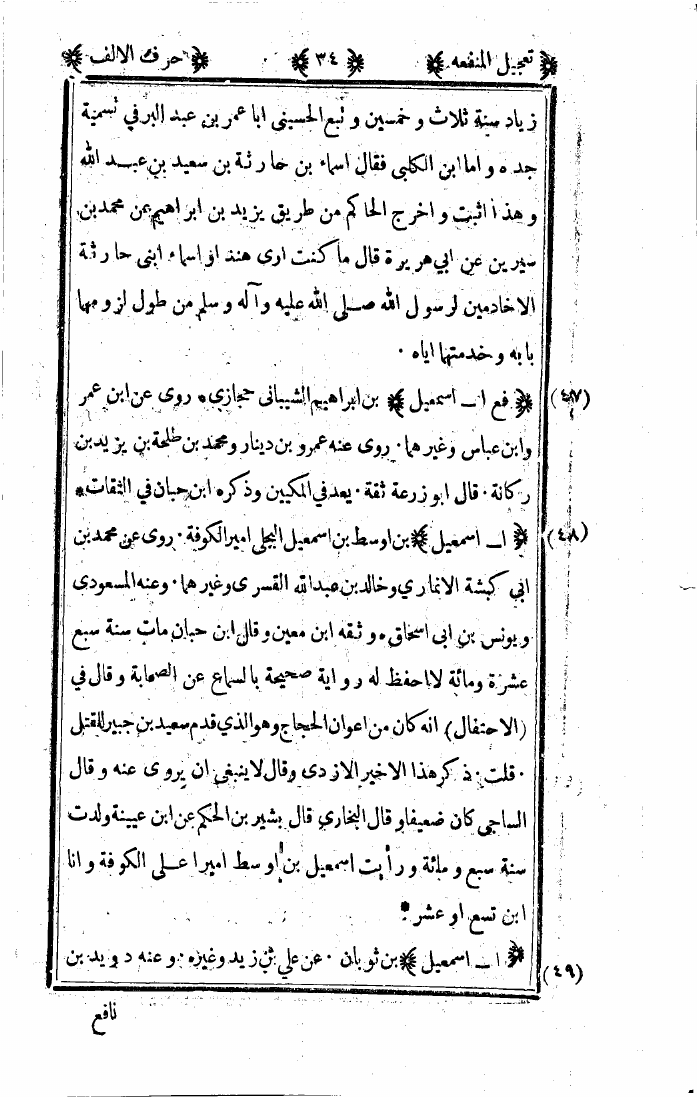 ﴿ تعجيل المنفعه ﴾ ﴿ ٣٤ ﴾ ﴿ حرف الالف ﴾
زياد سنة ثلاث و خمسين و تبع الحسيني ابا عمر بن عبد البر في تسمية
جده و اما ابن الكلبي فقال اسماء بن حارثة بن سعيد بن عبد الله
و هذا اثبت و اخرج الحاكم من طريق يزيد بن ابراهيم عن محمد بن
سيرين عن ابي هريرة قال ما كنت ارى هند او اسماء ابنى حارثة
الاخادمين لرسول الله صلى الله عليه وآله وسلم من طول لزومهما
بابه و خدمتهما اياه ٠
(٤٧) ﴿ فع ا ـ اسمعيل ﴾ بن ابراهيم الشيبانى حجازي ٠ روى عن ابن عمر
وابن عباس وغيرهما ٠ روى عنه عمرو بن دينار ومحمد بن طلحة بن يزيد بن
ركانة ٠ قال ابو زرعة ثقة ٠ يعد في المكيين وذكره ابن حبان في الثقات *
(٤٨) ﴿ ا ـ اسمعيل ﴾ بن اوسط بن اسمعيل البجلي امير الكوفة ٠ روى عن محمد بن
ابي كبشة الانماري وخالد بن عبدالله القسرى وغيرهما ٠ وعنه المسعودى
و يونس بن ابى اسحاق ٠ و ثقه ابن معين وقال ابن حبان مات سنة سبع
عشرة ومائة لا احفظ له رواية صحيحة بالسماع عن الصحابة وقال في
(الاحتفال) انه كان من اعوان الحجاج وهو الذي قدم سعيد بن جبير للقتل
٠ قلت ٠ ذكر هذا الاخير الازدى وقال لا ينبغى ان يروى عنه وقال
الساجى كان ضعيفا و قال البخاري قال بشير بن الحكم عن ابن عيينة ولدت
سنة سبع و مائة و رأيت اسمعيل بن اوسط اميرا على الكوفة و انا
ابن تسع او عشر *
(٤٩) ﴿ ا ـ اسمعيل ﴾ بن ثوبان ٠ عن علي بن زيد وغيره ٠ و عنه دويد بن
نافع